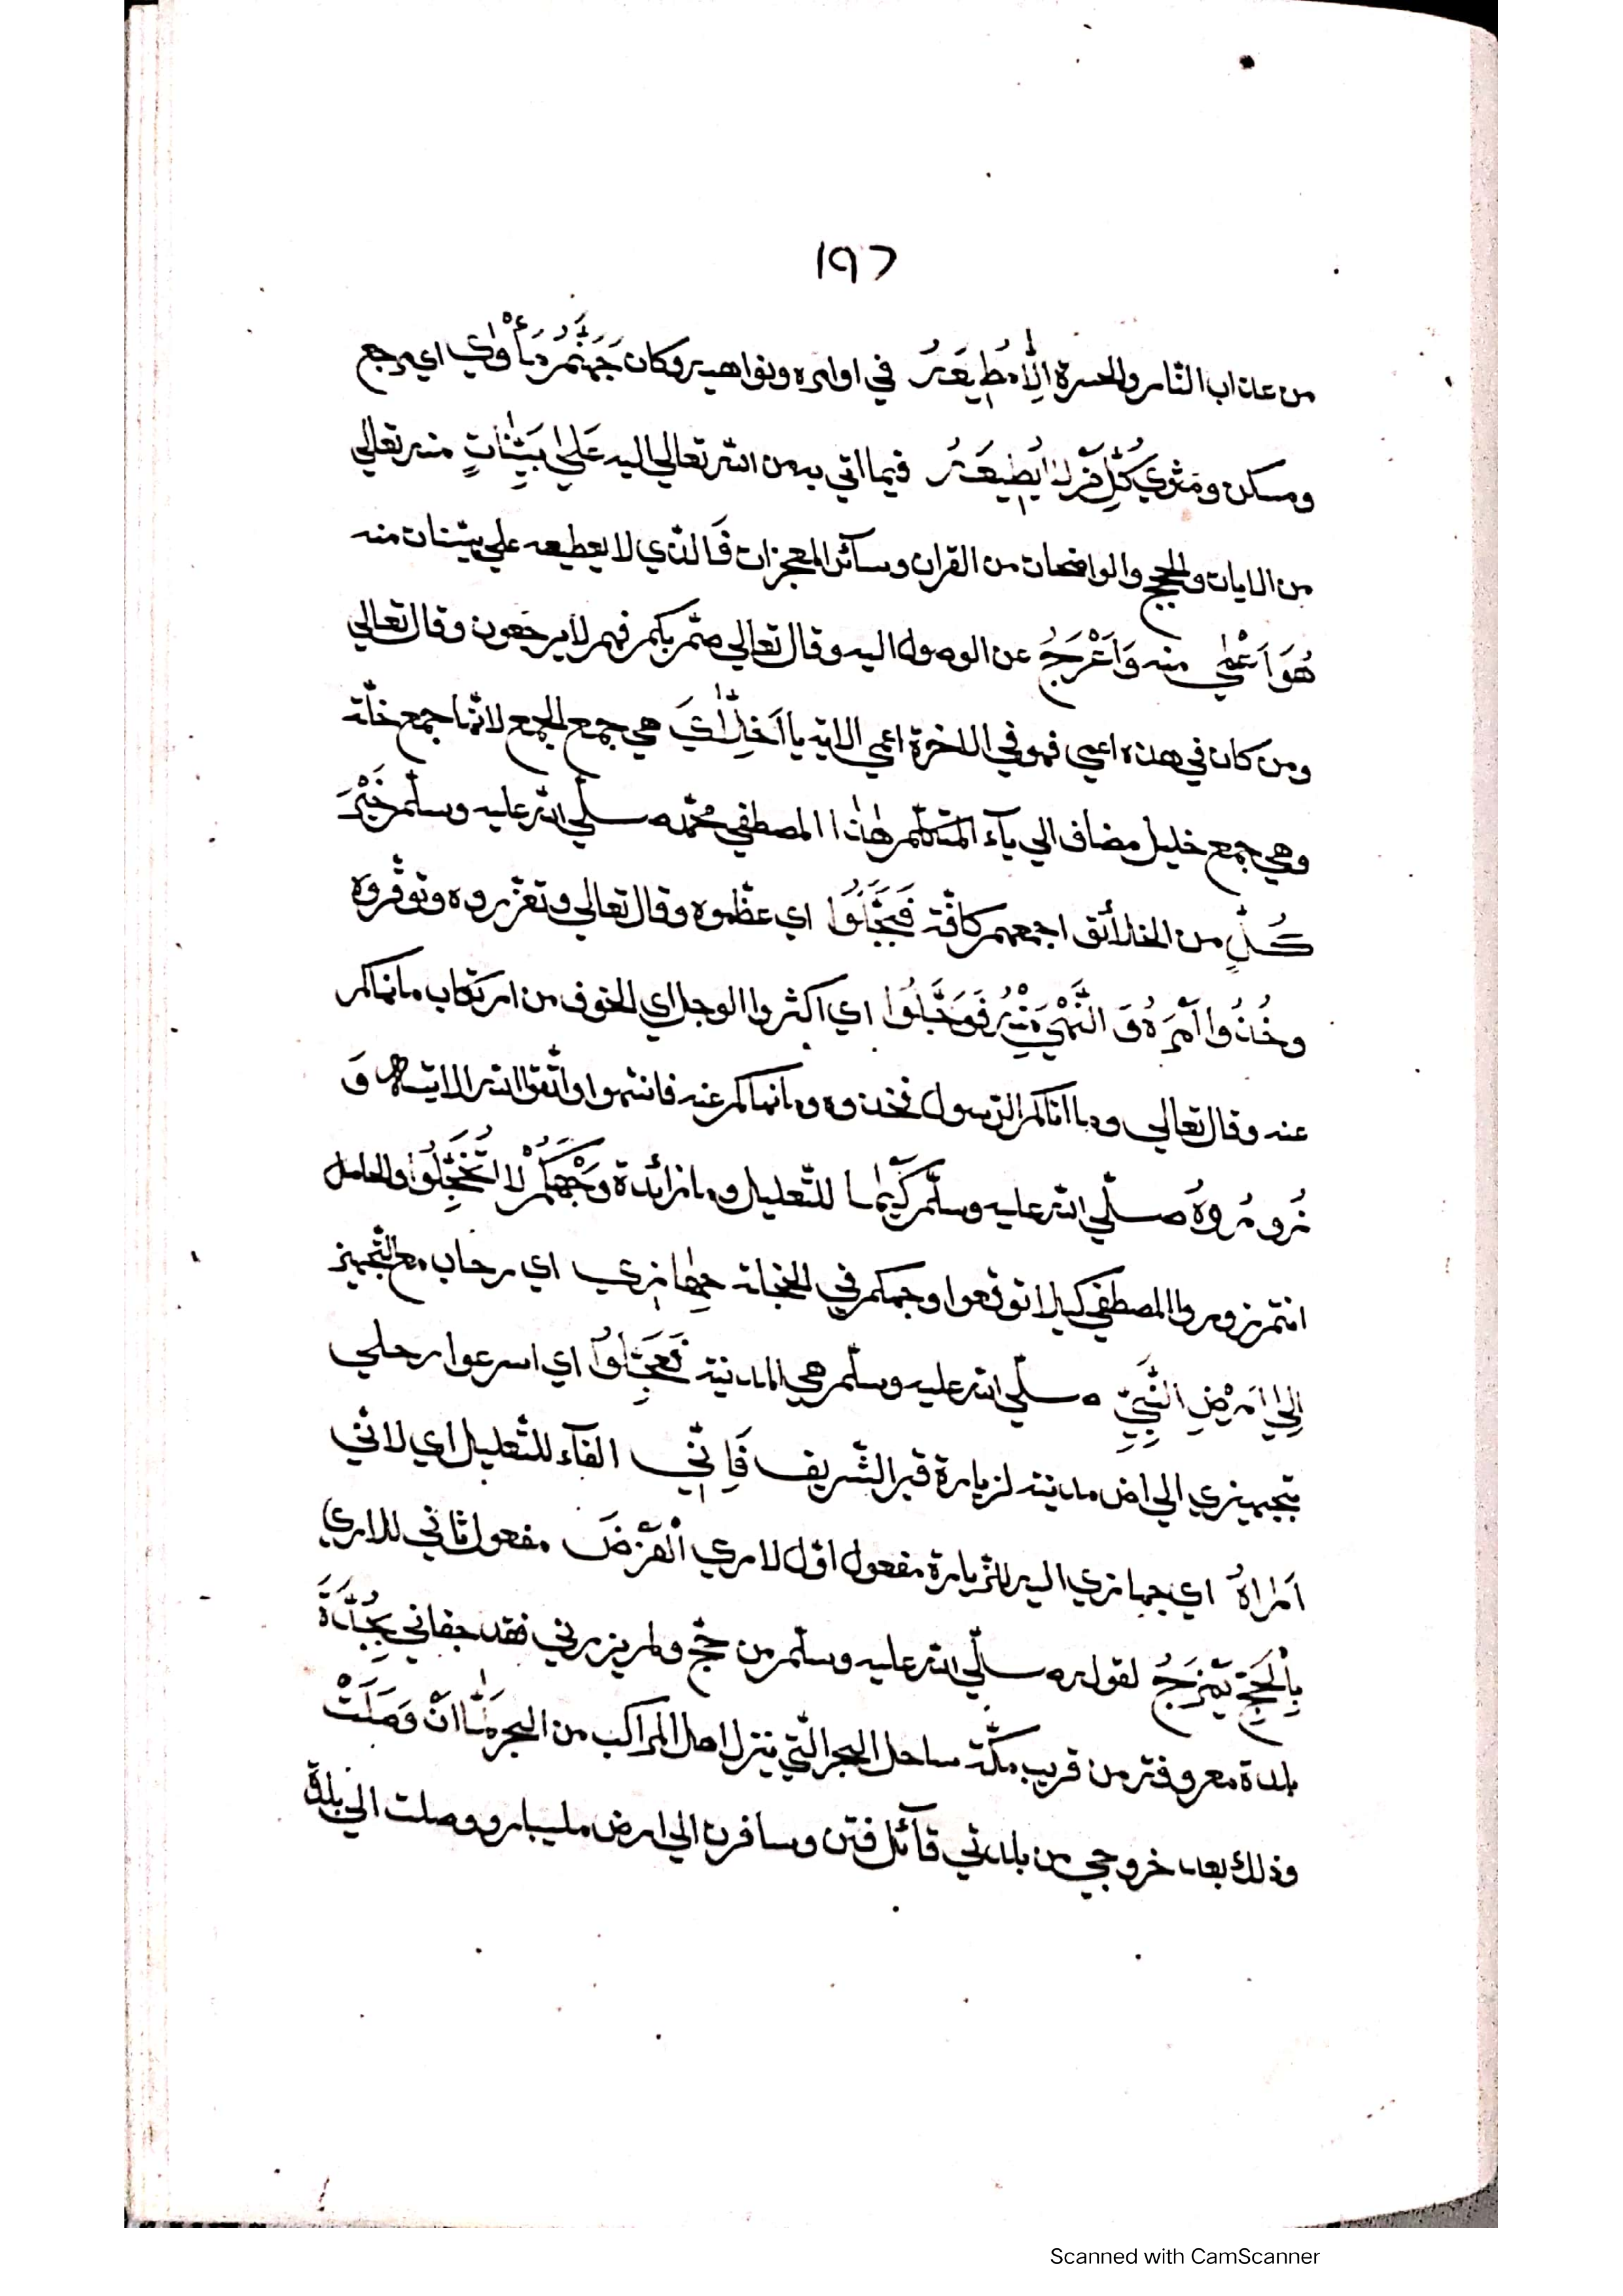 ١٩٦
من عذاب النّار والحسرة اِلَّا مُطِيعَهُ في اوامره ونواهيه وكان جَهَنَّمُ مَأْوٰي اي مرجع
ومسكن ومثوي كُلِّ مَنْ لَا يُطِيعُهُ فيما اتي به من الله تعالي اليه عَلٰي بَيِّنَاتٍ منه تعالي
من الايات والحجج والواضحات من القران وسائر المعجزات فَالذي لا يطيعه علي بيّنات منه
هُوَ اَعْمٰي منه وَاَعْرَجُ عن الوصول اليه وقال تعالي صمّ بكم فهم لا يرجعون وقال تعالي
ومن كان في هذه اعمي فهو في الاخرة اعمي الاية يا اَخِلَّائِي هي جمع الجمع لانّها جمع خلّة
وهي جمع خليل مضاف الي يآء المتكلّم هٰذا المصطفي محمّد صلّي الله عليه وسلّم خَيْرُ
كُلٍّ من الخلائق اجمعهم كافّة فَبَجِّلُوا اي عظّموه وقال تعالي وتعزّروه وتوقّروه
وخُذُوا اَمْرَهُ وَ النَّهْيَ مِنْهُ فَوَجَّلُوا اي اكثروا الوجل اي الخوف من ارتكاب ما نهاكم
عنه وقال تعالي وما اتاكم الرّسول فخذوه وما نهاكم عنه فانتهوا واتّقوا الله الاية وَ
زُورُوهُ صلّي الله عليه وسلّم كَيْمَا للتّعليل وما زائدة وَجْهَكُمْ لَا تُخَجِّلُوا والحاصل
انتم زوروا المصطفي كيلا توقعوا وجهكم في الخجلة جِهَازِي اي رحاب مع التّجهيز
اِلٰي اَرْضِ النَّبِيِّ صلّي الله عليه وسلّم هي المدينة فَعَجِّلُوا اي اسرعوا رحلي
بتجهيزي الي ارض مدينته لزيارة قبر الشّريف فَاِنِّي الفآء للتّعليل اي لانّي
اَرَاهُ اي جهازي اليه للزّيارة مفعول اوّل لاري الْفَرْضَ مفعول ثاني للاري
بِالْحَجِّ يُمْزَجُ لقوله صلّي الله عليه وسلّم من حجّ ولم يزرني فقد جفاني بِجُدَّةَ
بلدة معروفة من قريب مكّة ساحل البحر الّتي ينزل اهل المراكب من البحر لَمَّا اَنْ وَصَلَتْ
وذلك بعد خروجي من بلدتي قائل فتن وسافرن الي ارض مليبار ووصلت الي بلدة
Scanned with CamScanner